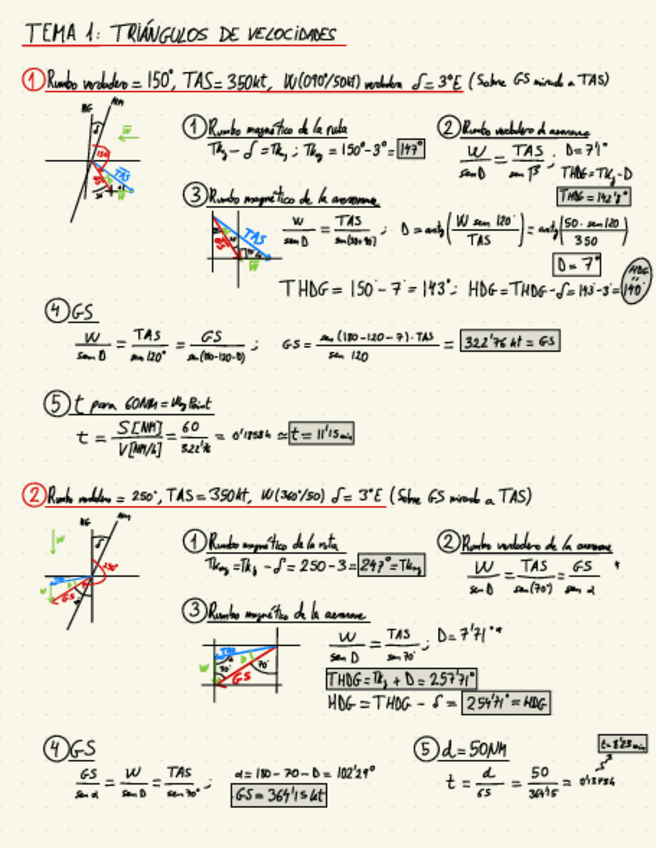 TEMA 1: TRIÁNGULOS DE VELOCIDADES
① Rumbo verdadero = 150°, TAS = 350kt, W(090°/50kt) verdadero δ = 3°E (Sobre GS mirando a TAS)
① Rumbo magnético de la ruta
Tkg - δ = Tkg ; Tkg = 150° - 3° = 147°
② Rumbo verdadero d aeronave
W/sen D = TAS/sen β ; D = 7'1°
THDG = Tkg - D
THDG = 142'9°
③ Rumbo magnético de la aeronave
W/sen D = TAS/sen(30+90) ; D = arctg(W sen 120°/TAS) = arctg(50 · sen 120/350)
D = 7°
THDG = 150° - 7° = 143° ; HDG = THDG - δ = 143 - 3 = 140°
HDG
TAS
GS
W
④ GS
W/sen D = TAS/sen 120° = GS/sen(180-120-D) ; GS = sen(180-120-7) · TAS/sen 120 = 322'76 kt = GS
⑤ t para 60NM = Way Point
t = S[NM]/V[NM/h] = 60/322'76 = 0'1858h ≃ t = 11'15 min
② Rumbo verdadero = 250°, TAS = 350kt, W(360°/50) δ = 3°E (Sobre GS mirando a TAS)
① Rumbo magnético de la ruta
Tkm = Tkg - δ = 250 - 3 = 247° = Tkm
② Rumbo verdadero de la aeronave
W/sen D = TAS/sen(70°) = GS/sen α *
③ Rumbo magnético de la aeronave
W/sen D = TAS/sen 70° ; D = 7'71° *
THDG = Tkg + D = 257'71°
HDG = THDG - δ = 254'71° = HDG
④ GS
GS/sen α = W/sen D = TAS/sen 70° ; α = 180 - 70 - D = 102'29°
GS = 364'15 kt
⑤ d = 50NM
t = d/GS = 50/364'15 = 0'1373h
t = 8'23 min